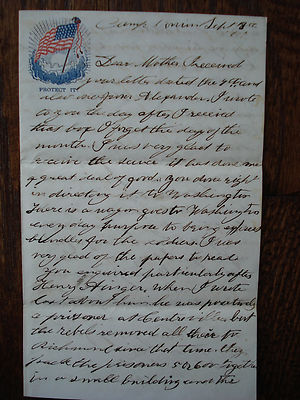 Camp Sept
PROTECT IT
Dear Mother I received
your letter dated the 9th and
also one from Alexander. I wrote
to you the day after I received
that box I forget the day of the
month. I was very glad to
receive the it has done me
a great deal of good. You done right
in directing it to Washington
There is a wagon goes to Washington
every day purpose to bring
bundles for the soldiers. I was
very glad of the papers to read
You enquired particularly after
Henry when I wrote
last about him he was positively
a prisoner at Centreville but
the rebels removed all there to
Richmond since that time. they
the prisoners 50 or 60 together
in a small building and the